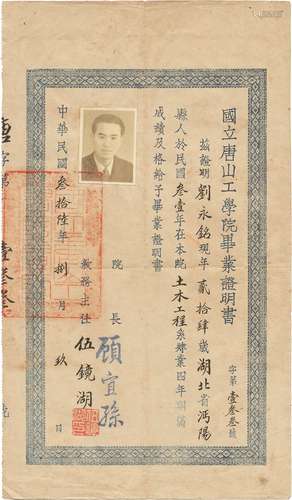 國立唐山工學院畢業證明書
字第壹叁叁號
茲證明劉永銘現年貳拾肆歲湖北省沔陽
縣人於民國叁壹年在本院土木工程系肄業四年期滿
成績及格給予畢業證明書
院長 顧宜孫
教務主任 伍鏡湖
中華民國叁拾陸年捌月玖日
唐字第壹叁叁號